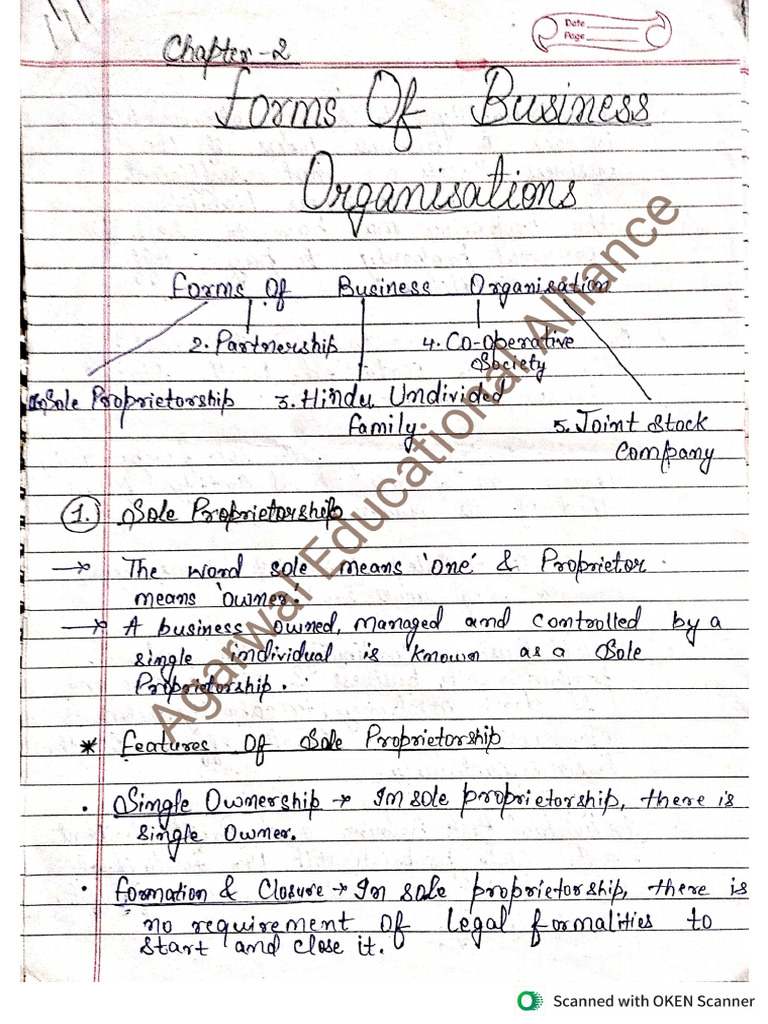 Date
Page
Chapter-2
Forms Of Business
Organisations
Forms Of Business Organisation
2. Partnership 4. Co-operative
Society
1. Sole Proprietorship 3. Hindu Undivided
family
5. Joint Stock
Company
1. Sole Proprietorship
→ The word sole means 'one' & Proprietor
means 'owner'.
→ A business owned, managed and controlled by a
single individual is known as a Sole
Proprietorship.
* Features Of Sole Proprietorship
• Single Ownership → In sole proprietorship, there is
single owner.
• Formation & Closure → In sole proprietorship, there is
no requirement of legal formalities to
start and close it.
Agarwal Educational Alliance
Scanned with OKEN Scanner